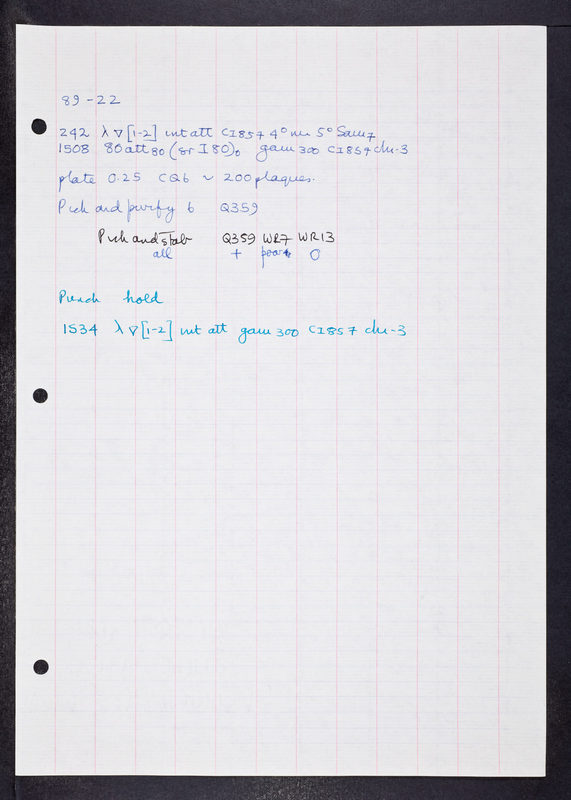 89-22
242 λ ∇ [1-2] int att CI857 4° nin 5° Sam7
1508 80 att 80 (sr I 80)0 gam 300 CI857 chi-3
plate 0.25 CQ6 ~ 200 plaques.
Pick and purify 6 Q359
Pick and stab Q359 WR7 WR13
all + poor + 0
Pick hold
1534 λ ∇ [1-2] int att gam 300 CI857 chi-3